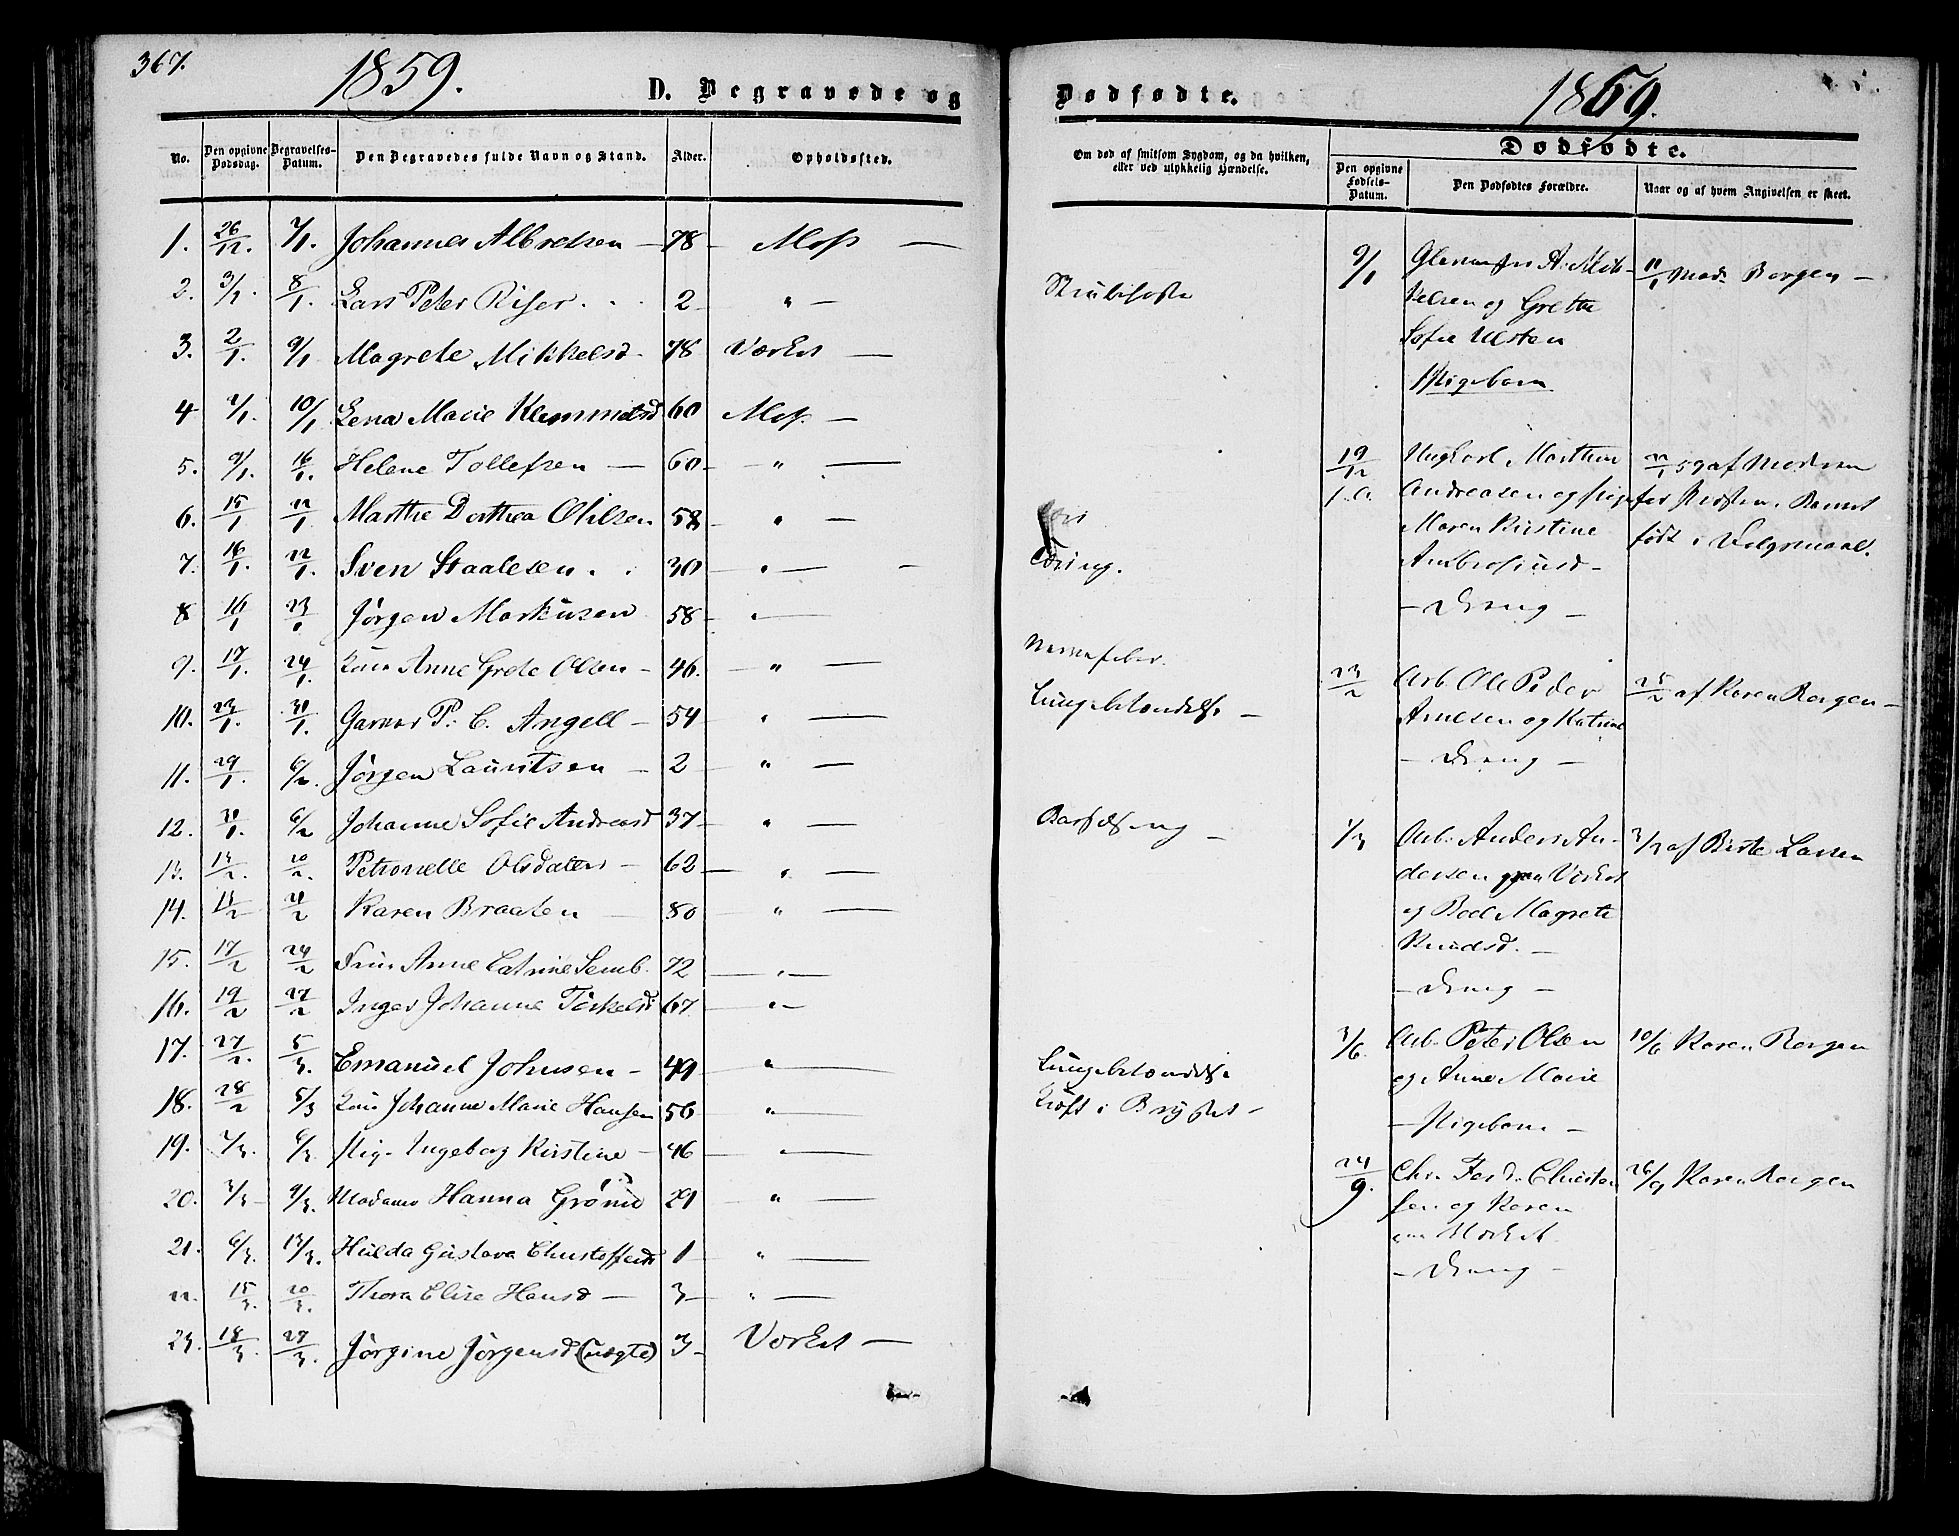 367.
1859.
D. Begravede og
No. Den opgivne Dødsdag. Begravelses-Datum. Den Begravedes fulde Navn og Stand. Alder. Opholdssted.
1. 26/12. 7/1. Johannes Albretsen — 78 — Moss —
2. 3/1. 8/1. Lars Peter Riser . . 2 — " —
3. 2/1. 9/1 Magrete Mikkelsd. 78 Værket —
4 7/1. 10/1 Lena Marie Klemmetsd 60 Moss —
5. 9/1. 16/1. Helene Tollefsen — 60 — " —
6. 15/1 22/1. Marthe Dorthea Olsen 58 — " —
7. 16/1. 22/1. Sven Staalesen . . 30 — " — —
8 16/1 23/1 Jørgen Markusen 58 — " —
9. 17/1. 24/1. Anne Grete Olsen — 46. — " —
10. 23/1. 30/1. Garver P. C. Angell — 54 — " —
11. 29/1. 6/2. Jørgen Lauritsen — 2 — " —
12. 30/1. 6/2 Johanne Sofie Andreasd 37 — " —
13. 13/2. 20/2. Petronelle Olsdatter — 62 — " —
14. 13/2 21/2 Karen Braaten — 80 — " —
15. 17/2 24/2 Anne Catrine Semb. 72 — " —
16. 19/2 27/2 Inger Johanne Torkelsd 67 — " —
17. 27/2. 5/3. Emanuel Johnsen — 49 — " —
18. 28/2 5/3 Johanne Marie Hansen 56 — " —
19. 2/3. 6/3. Pig. Ingeborg Kirstine — 46 — " —
20. 3/3 — 9/3. Madame Hanna Grønn 29 — " —
21. 6/3. 13/3. Hulda Gustava Christoffersd 1 — " —
22. 15/3. 20/3. Thora Elise Hansd — 3 — " —
23. 18/3. 27/3. Jørgine Jørgensd (uægte) 3 — Værket —
Dødfødte.
1869.
Om død af smitsom Sygdom, og da hvilken, eller ved ulykkelig Hændelse.
Dødfødte.
Den opgivne Fødsels-Datum. Den Dødfødtes Forældre. Naar og af hvem Angivelsen er skeet.
Strubehoste
Nervefeber.
Lungebetændelse —
Barselseng —
Lungebetændelse
Kræft i Brystet —
9/1 A. Mik- 11/1 Mad. Borgen —
kelsen og Grethe
Sofie Ulsten
Pigebarn
19/12 Ungkarl Marthin 22/1 59 af Moderen
f. A. Andreasen og Pige
Maren Kirstine født i Dølgsmaal.
Ambrosiusd —
— Dreng —
23/2 Arb. Ole Peder 25/2 af Karen Borgen —
Arnesen og Katrine
— Dreng —
1/3 Arb. Anders An- 3/3 af Birte Larsen
dersen paa Værket
og Boel Magrete
Knudsd. —
— Dreng —
3/6. Arb. Peter Olsen 10/6 Karen Borgen
og Anne Marie
— Pigebarn —
24/9. Chr. Ferd. Christen 26/9 Karen Borgen
sen og Karen
paa Værket.
— Dreng —